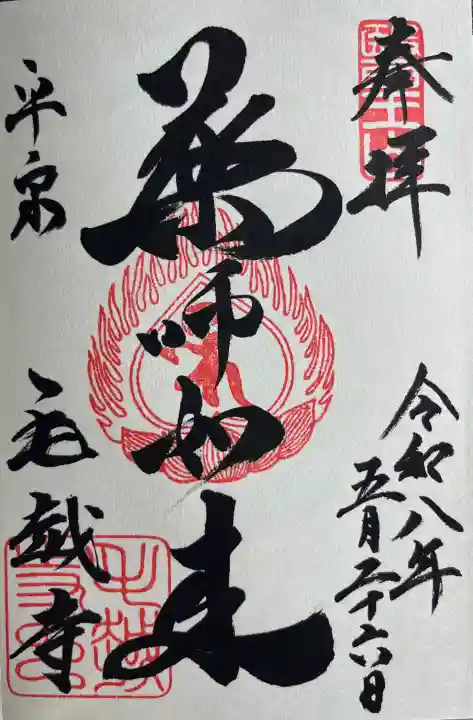 奉拝
令和八年
五月二十六日
薬師如来
平泉
毛越寺